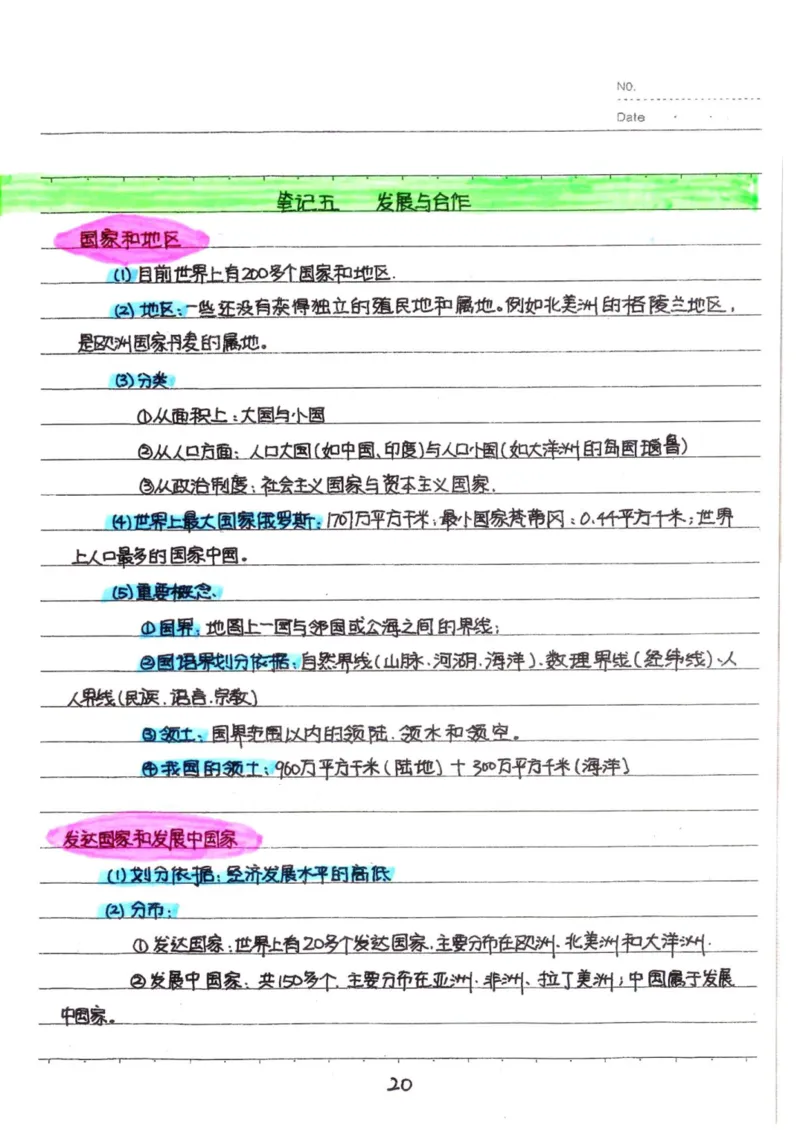 NO.
Date
笔记五 发展与合作
国家和地区
(1)目前世界上有200多个国家和地区.
(2)地区:一些还没有获得独立的殖民地和属地。例如北美洲的格陵兰地区,
是欧洲国家丹麦的属地。
(3)分类
①从面积上:大国与小国
②从人口方面:人口大国(如中国、印度)与人口小国(如大洋洲的岛国瑙鲁)
③从政治制度:社会主义国家与资本主义国家.
(4)世界上最大国家俄罗斯:1707万平方千米;最小国家梵蒂冈:0.44平方千米;世界
上人口最多的国家中国。
(5)重要概念、
①国界:地图上一国与邻国或公海之间的界线;
②国语界划分依据:自然界线(山脉.河湖.海洋)、数理界线(经纬线)、人
人界线(民族.语言.宗教)
③领土:国界范围以内的领陆.领水和领空。
④我国的领土:960万平方千米(陆地)十300万平方千米(海洋)
发达国家和发展中国家
(1)划分依据:经济发展水平的高低
(2)分布:
①发达国家:世界上有20多个发达国家.主要分布在欧洲、北美洲和大洋洲.
②发展中国家:共150多个.主要分布在亚洲.非洲、拉丁美洲;中国属于发展
中国家。
20